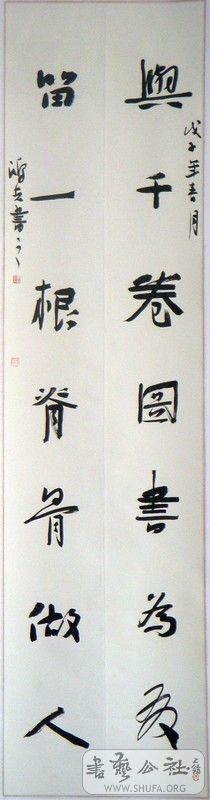 戊子年春月
與千卷圖書為友
留一根脊骨做人
書之
書藝公社
WWW.SHUFA.ORG